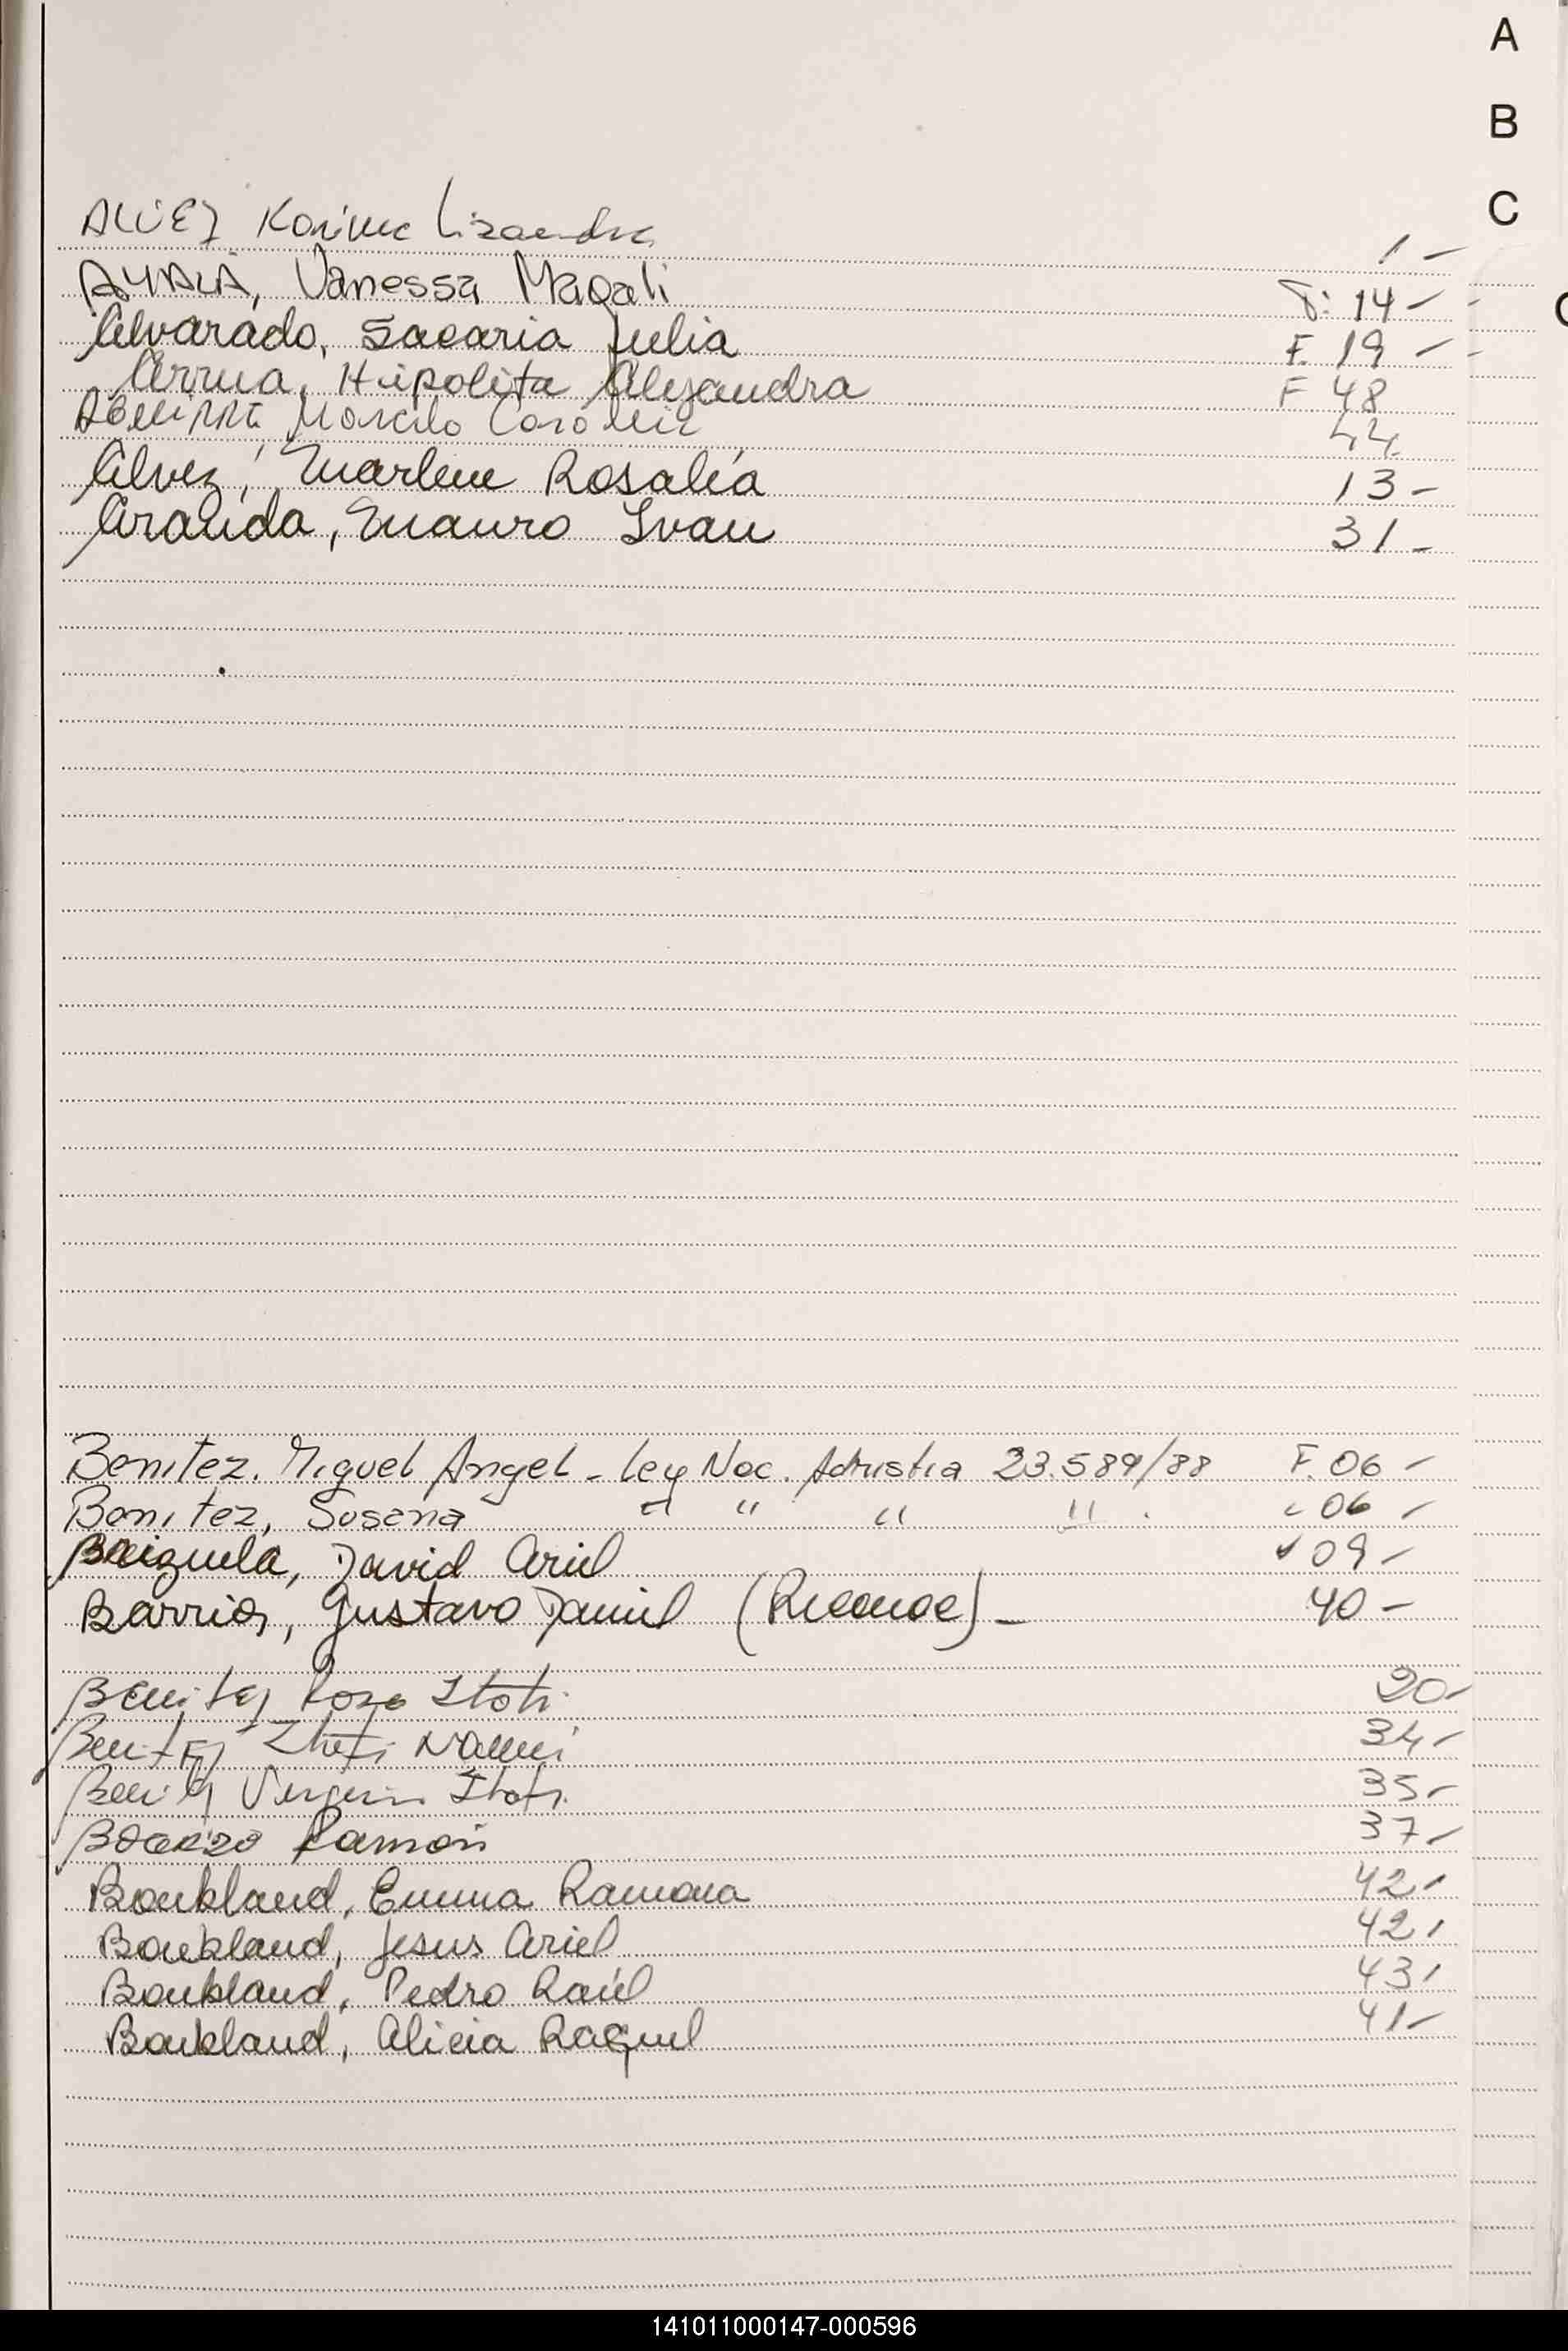 A
B
C
ALVEZ Karina Lisandra 1 -
AYALA, Vanessa Magali F: 14 -
Alvarado, Zacaria Julia F. 19 -
Arrua, Hipolita Alejandra F 48
Marcilo 44
Alvez, Marlene Rosalía 13 -
Aranda, Mauro Ivan 31 -
Benitez. Miguel Angel - Ley Nac. Adristia 23.589/88 F. 06 -
Benitez, Susana " " " " " 06 -
Baizuela, David Ariel " 09 -
Barrios, Gustavo Daniel (Reconoc) - 40 -
Benitez Rosa Itati 20 -
Benitez Noemi 34 -
Benitez Itati 35 -
Ramon 37 -
Bonkland, Emma Ramona 42 -
Bonkland, Jesus Ariel 42 -
Bonkland, Pedro Raúl 43 -
Bonkland, Alicia Raquel 41 -
141011000147-000596